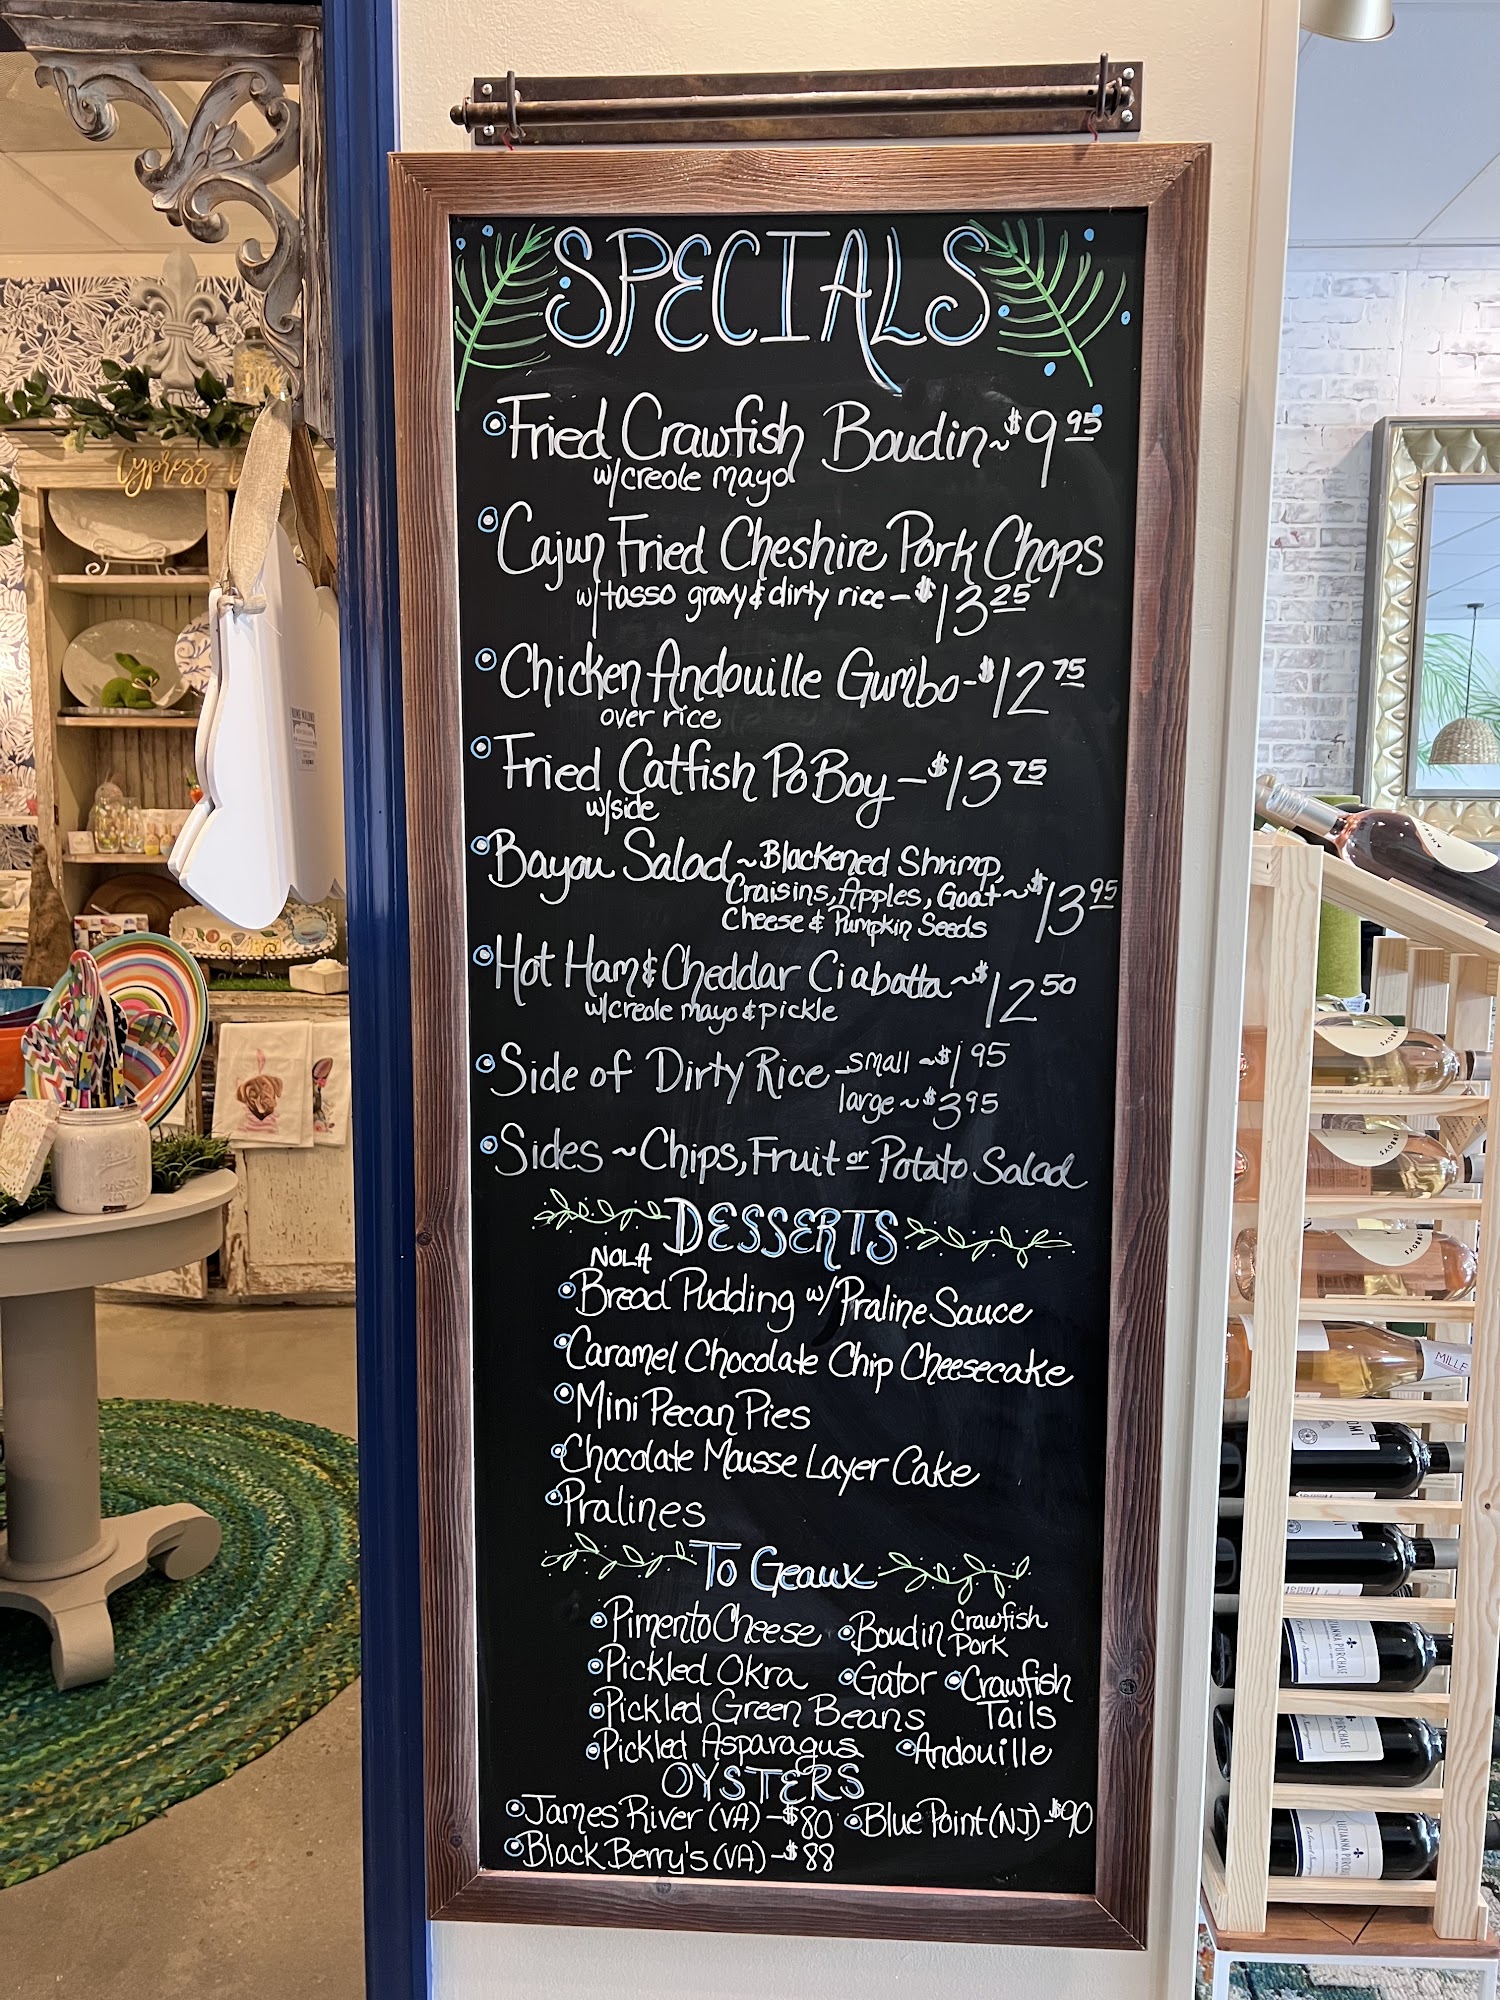 SPECIALS
Fried Crawfish Boudin ~ $9.95
w/creole mayo
Cajun Fried Cheshire Pork Chops
w/tasso gravy & dirty rice - $13.25
Chicken Andouille Gumbo - $12.75
over rice
Fried Catfish Po Boy - $13.75
w/side
Bayou Salad ~ Blackened Shrimp,
Craisins, Apples, Goat ~ $13.95
Cheese & Pumpkin Seeds
Hot Ham & Cheddar Ciabatta ~ $12.50
w/creole mayo & pickle
Side of Dirty Rice - small ~ $1.95
large ~ $3.95
Sides ~ Chips, Fruit or Potato Salad
DESSERTS
NOLA
Bread Pudding w/ Praline Sauce
Caramel Chocolate Chip Cheesecake
Mini Pecan Pies
Chocolate Mousse Layer Cake
Pralines
To Geaux
Pimento Cheese
Boudin Crawfish
Pork
Pickled Okra
Gator
Crawfish
Tails
Pickled Green Beans
Pickled Asparagus
Andouille
OYSTERS
James River (VA) - $80
Blue Point (NJ) - $90
Black Berry's (VA) - $88
Cypress
MILLE
LUZIANNA PURCHASE
LUZIANNA PURCHASE
LUZIANNA PURCHASE